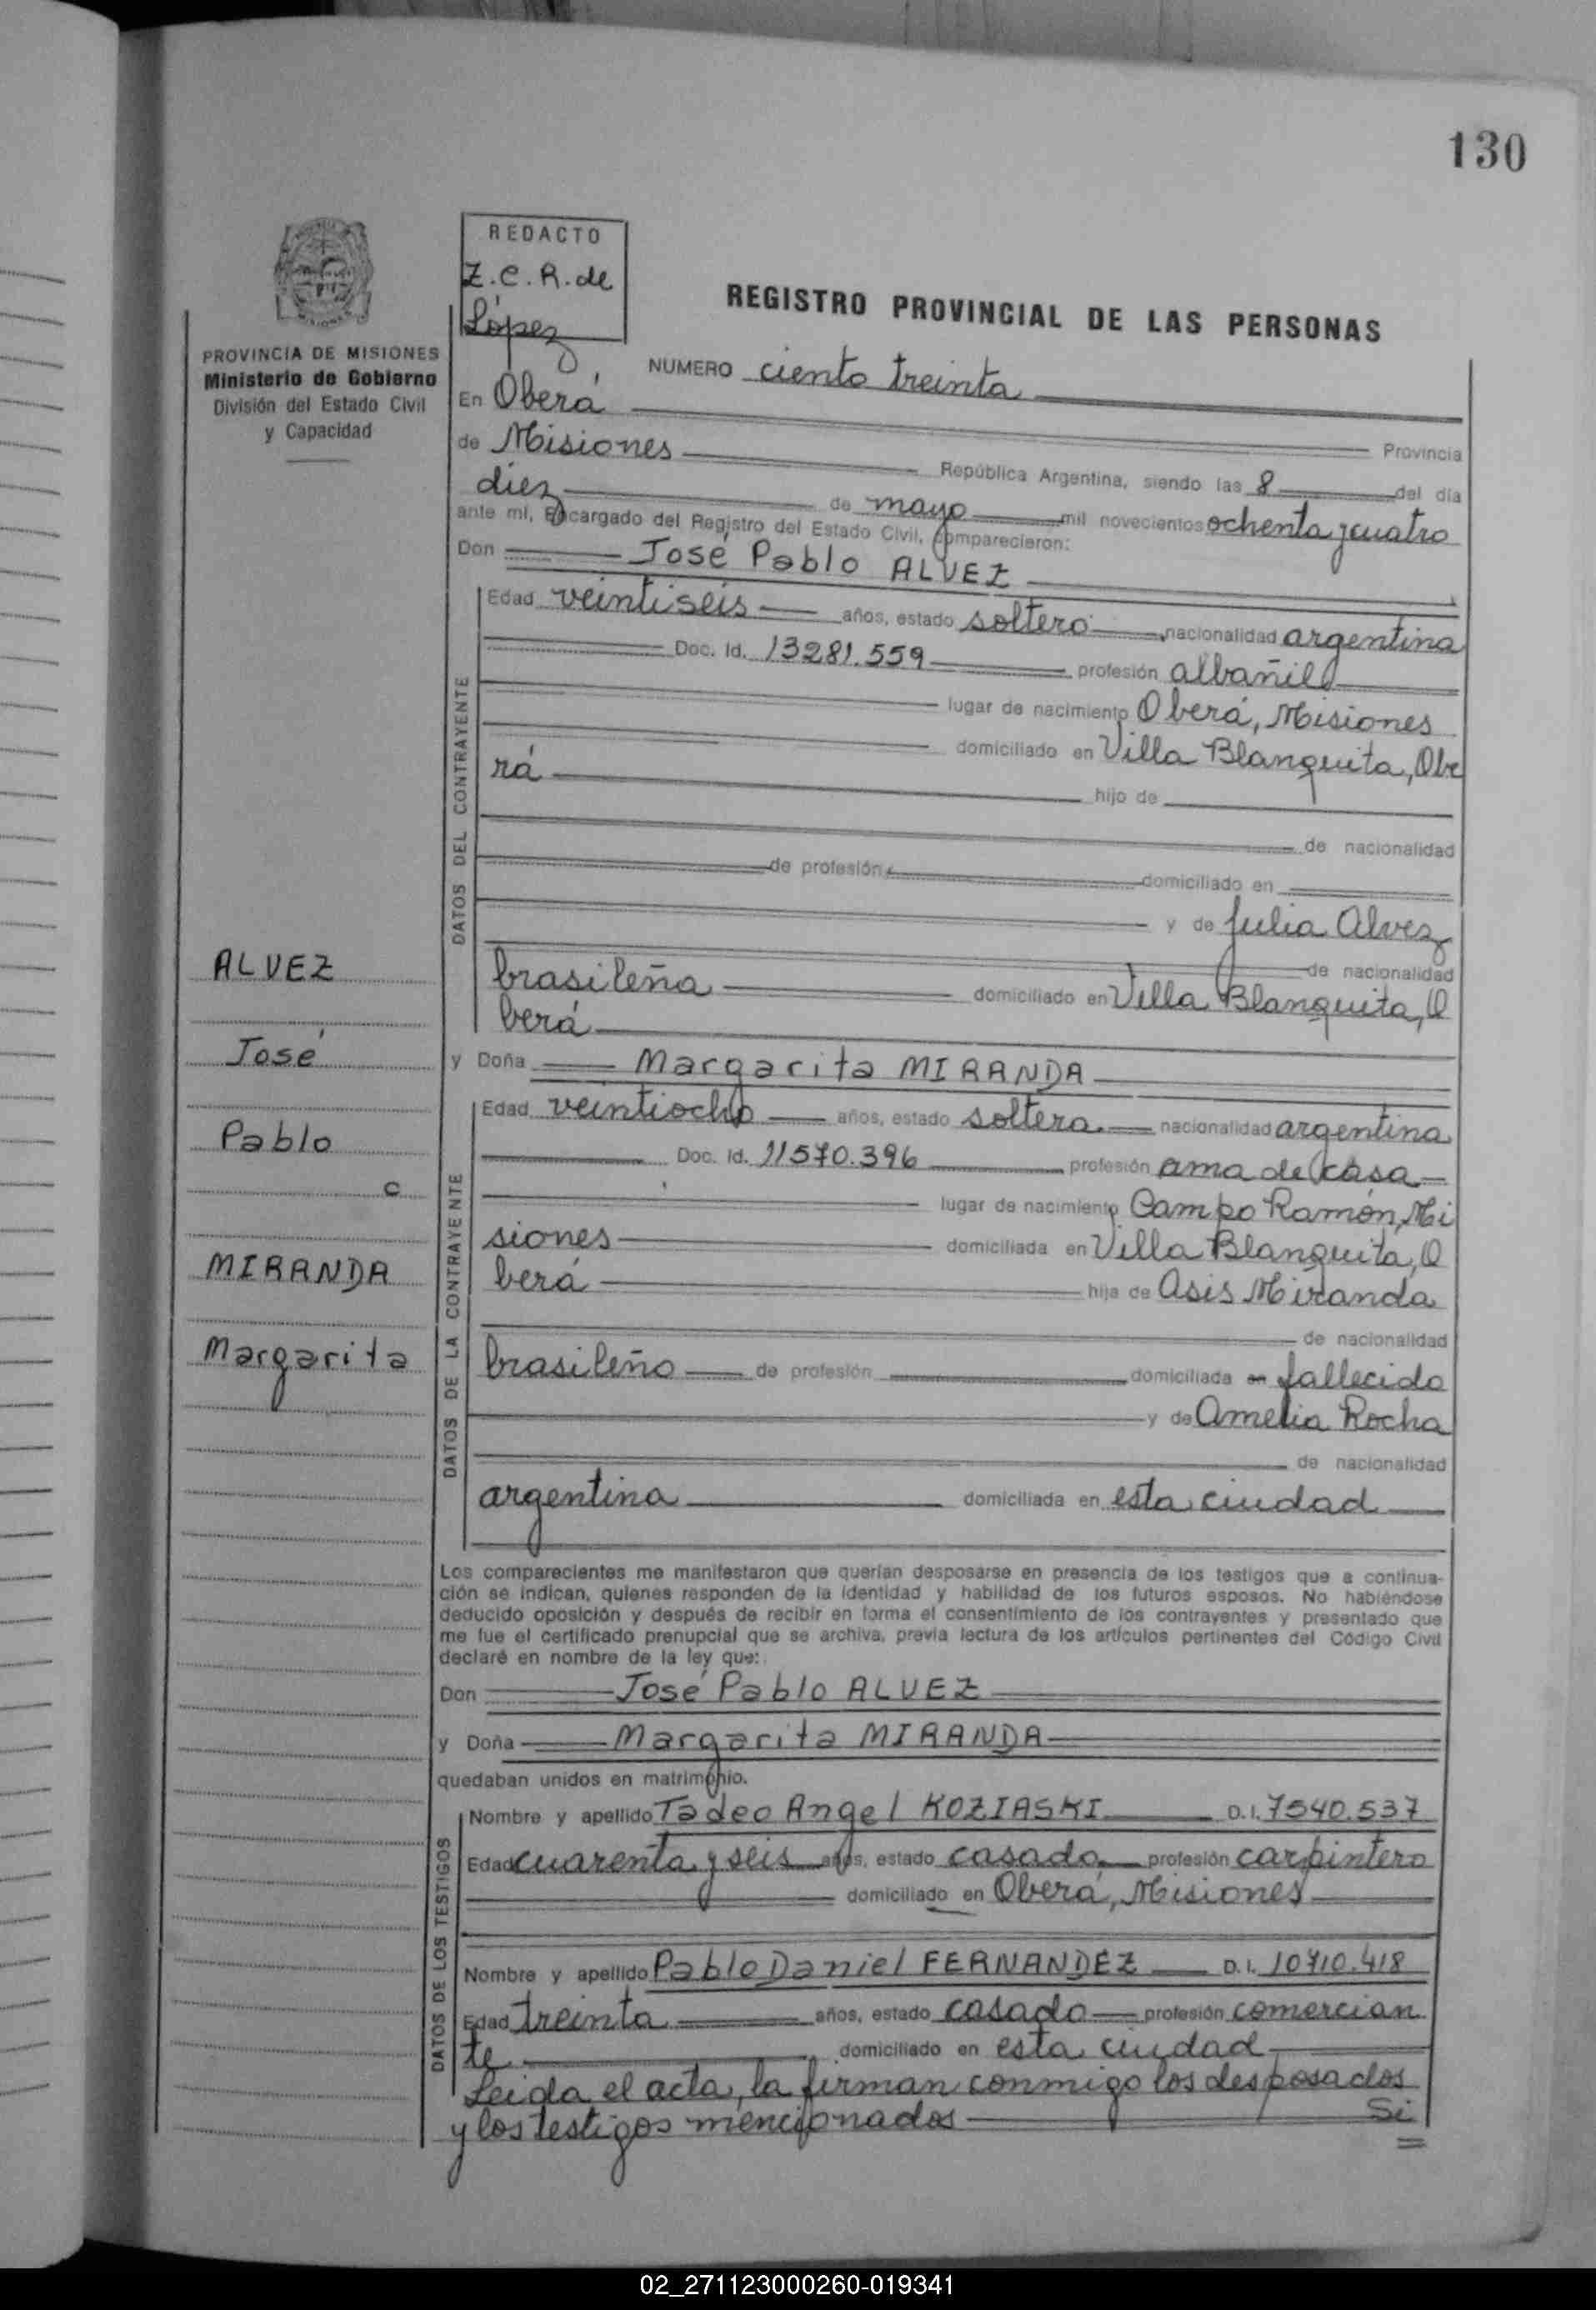 130
REDACTO
Z.C.R. de
López
REGISTRO PROVINCIAL DE LAS PERSONAS
PROVINCIA DE MISIONES
Ministerio de Gobierno
División del Estado Civil
y Capacidad
NUMERO ciento treinta
En Oberá Provincia
de Misiones República Argentina, siendo las 8 del día
diez de mayo mil novecientos ochenta y cuatro
ante mí, Encargado del Registro del Estado Civil, comparecieron:
Don José Pablo ALVEZ
DATOS DEL CONTRAYENTE
Edad veintiseis años, estado soltero nacionalidad argentina
Doc. Id. 13281.559 profesión albañil
lugar de nacimiento Oberá, Misiones
domiciliado en Villa Blanquita, Obe
rá hijo de
de nacionalidad
de profesión domiciliado en
y de Julia Alvez
de nacionalidad
brasileña domiciliado en Villa Blanquita, O
berá
ALVEZ
José
Pablo
c
MIRANDA
Margarita
y Doña Margarita MIRANDA
DATOS DE LA CONTRAYENTE
Edad veintiocho años, estado soltera. nacionalidad argentina
Doc. Id. 11570.396 profesión ama de casa
lugar de nacimiento Campo Ramón, Mi
siones domiciliada en Villa Blanquita, O
berá hija de Asis Miranda
de nacionalidad
brasileño de profesión domiciliada en fallecido
y de Amelia Rocha
de nacionalidad
argentina domiciliada en esta ciudad
Los comparecientes me manifestaron que querían desposarse en presencia de los testigos que a continua-
ción se indican, quienes responden de la identidad y habilidad de los futuros esposos. No habiéndose
deducido oposición y después de recibir en forma el consentimiento de los contrayentes y presentado que
me fue el certificado prenupcial que se archiva, previa lectura de los artículos pertinentes del Código Civil
declaré en nombre de la ley que:
Don José Pablo ALVEZ
y Doña Margarita MIRANDA
quedaban unidos en matrimonio.
DATOS DE LOS TESTIGOS
Nombre y apellido Tadeo Angel KOZIASKI D.I. 7540.537
Edad cuarenta y seis años, estado casado profesión carpintero
domiciliado en Oberá, Misiones
Nombre y apellido Pablo Daniel FERNANDEZ D.I. 10710.418
Edad treinta años, estado casado profesión comercian
te domiciliado en esta ciudad
Leida el acta, la firman conmigo los desposados
y los testigos mencionados Si
02_271123000260-019341